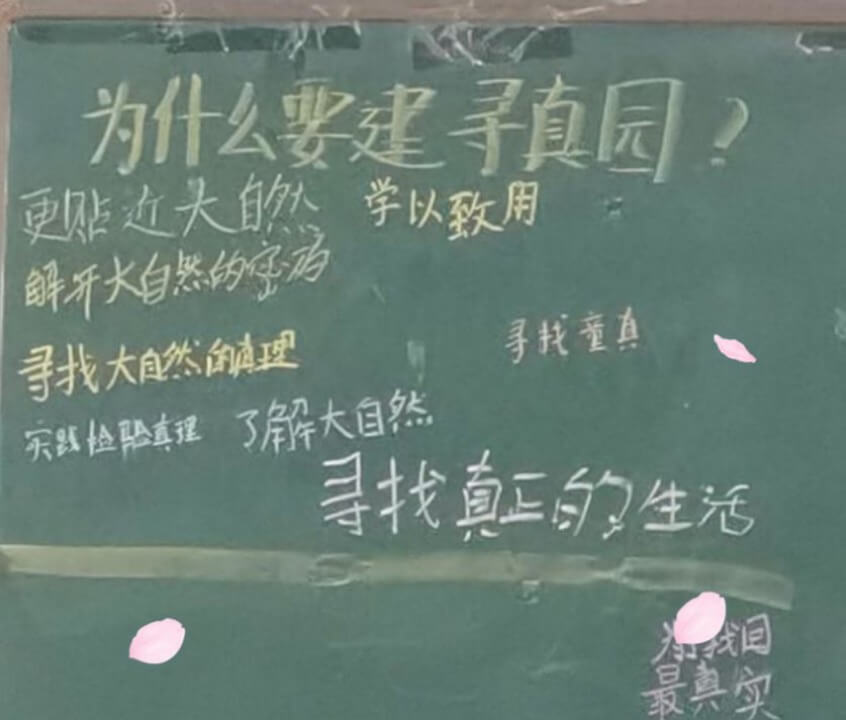 为什么要建寻真园？
更贴近大自然 学以致用
解开大自然的密
寻找大自然的真理
寻找童真
实践检验真理 了解大自然
寻找真正的生活
我回
最真实